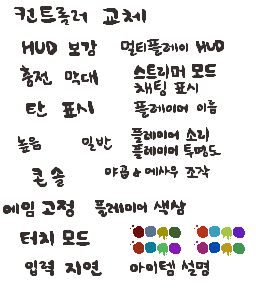 컨트롤러 교체
HUD 보감 멀티플레이 HUD
충전 막대 스트리머 모드
채팅 표시
탄 표시 플레이어 이름
높음 일반 플레이어 소리
플레이어 투명도
콘솔 야곱&에사우 조작
에임 고정 플레이어 색상
터치 모드
입력 지연 아이템 설명